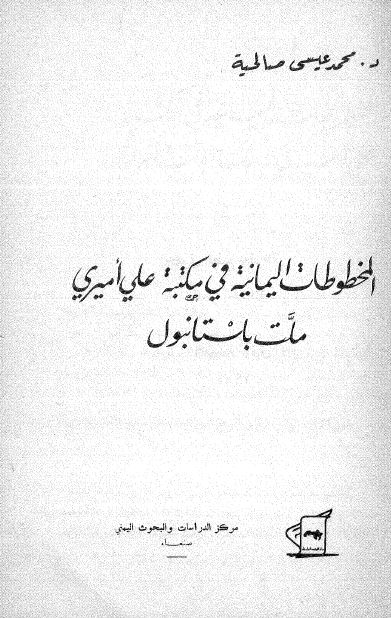 د. محمد عيسى صالحية
المخطوطات اليمانية في مكتبة علي أميري
ملَّت باستانبول
مركز الدراسات والبحوث اليمني
صنعاء